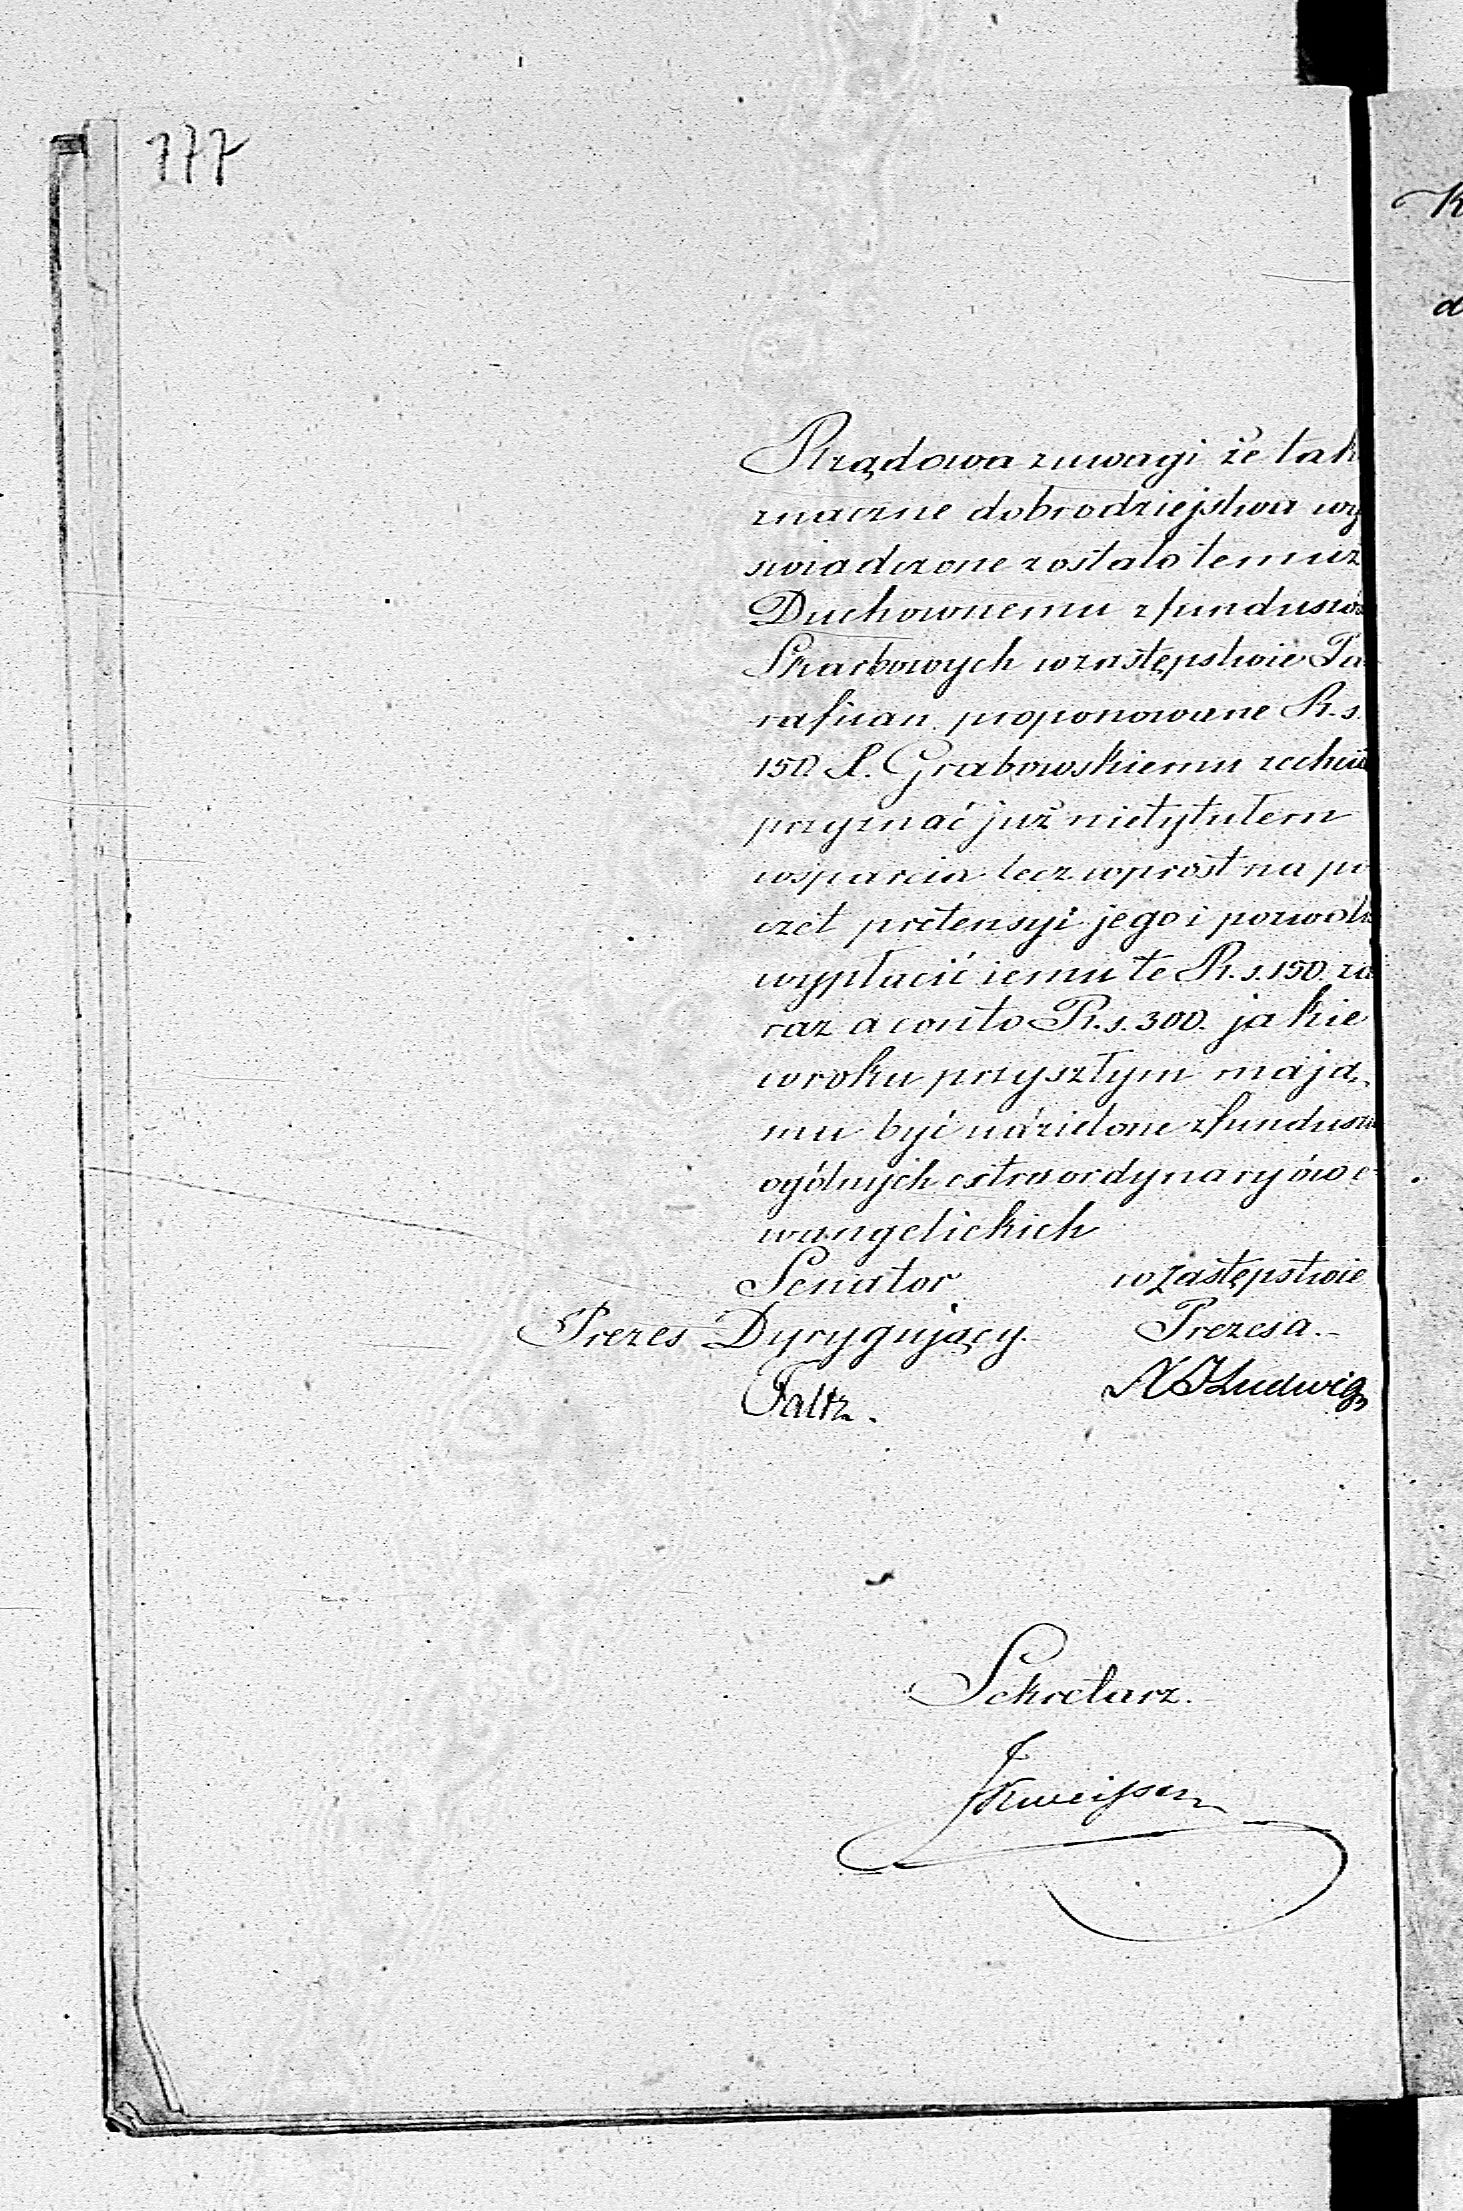 177
Rządowa z uwagi że tak
znaczne dobrodziejstwa wy
swiadczone zostało temuż
Duchownemu z funduszów
Skarbowych w zastępstwie Pa
rafian, proponowane R. s.
150 X. Grabowskiemu zechce
przyznać już nie tytułem
wsparcia lecz wprost na po
czet pretensyi jego i pozwoli
wypłacić iemu te R. s. 150. za
raz a conto R. s. 300. jakie
w roku przyszłym mają
mu być udzielone z fundusz
ogólnych extraordynaryów e
wangelickich
Senator w zastępstwie
Prezes Dyrygujący. Prezesa.
Faltz. Ludwig
Sekretarz.